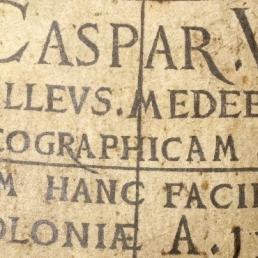 CASPAR. V
LLEVS. MEDEB
EOGRAPHICAM
M HANC FACIE
OLONIÆ A. 15